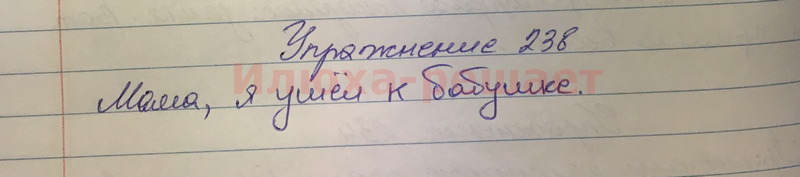 Упражнение 238
Илюха-решает
Мама, я ушёл к бабушке.